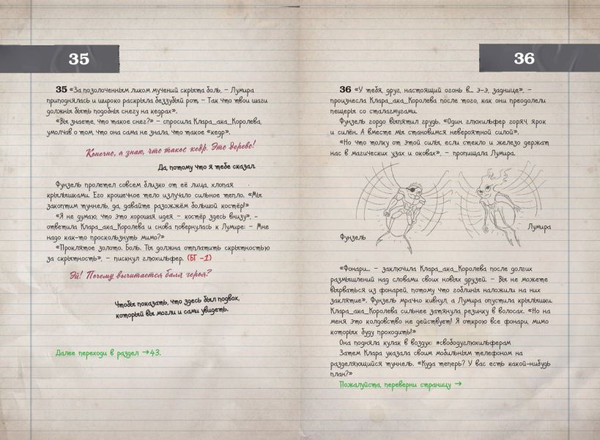 35
35 «За позолоченным ликом мучений скрыта боль. – Лумира
приподнялась и широко раскрыла беззубый рот. – Так что твои шаги
должны быть подобны снегу на кедрах».
«Вы знаете, что такое снег?» – спросила Клара_ака_Королева,
умолчав о том, что сама не знала, что такое «кедр».
Конечно, я знаю, что такое кедр. Это дерево!
Да, потому что я тебе сказал.
Фунзель пролетел совсем близко от её лица, хлопая
крылышками. Его крошечное тело излучало сильное тепло. «Мы
закоптим туннель, да, давайте разожжём большой костёр!»
«Я не думаю, что это хорошая идея – костёр здесь внизу», –
ответила Клара_ака_Королева и снова повернулась к Лумире: – Мне
надо как-то проскользнуть мимо?»
«Проклятое золото, боль. Ты должна отплатить скрытностью
за скрытность», – пискнул глюхльфер. (БГ –1)
Эй! Почему вычитается балл героя?
Чтобы показать, что здесь был подвох,
который вы могли и сами увидеть.
Далее переходи в раздел →43.
36
36 «У тебя, друг, настоящий огонь в... э-э, заднице», –
произнесла Клара_ака_Королева после того, как они преодолели
пещеру со сталагмитами.
Фунзель гордо выпятил грудь. «Один глюхльфер горяч, ярок
и силён. А вместе мы становимся невероятной силой».
«Но что толку от этой силы, если стекло и железо держат
нас в магических узах и оковах», – пропищала Лумира.
Фунзель
Лумира
«Фонари... – заключила Клара_ака_Королева после долгих
размышлений над словами своих новых друзей. – Вы не можете
вырваться из фонарей, потому что гоблины наложили на них
заклятие». Фунзель мрачно кивнул, а Лумира опустила крылышки.
Клара_ака_Королева сильнее затянула резинку в волосах. «Но на
меня это колдовство не действует! Я открою все фонари, мимо
которых буду проходить!»
Она подняла кулак в воздух: «#свободуглюхльферам
Затем Клара указала своим мобильным телефоном на
разделяющийся туннель. «Куда теперь? У вас есть какой-нибудь
план?»
Пожалуйста, переверни страницу →